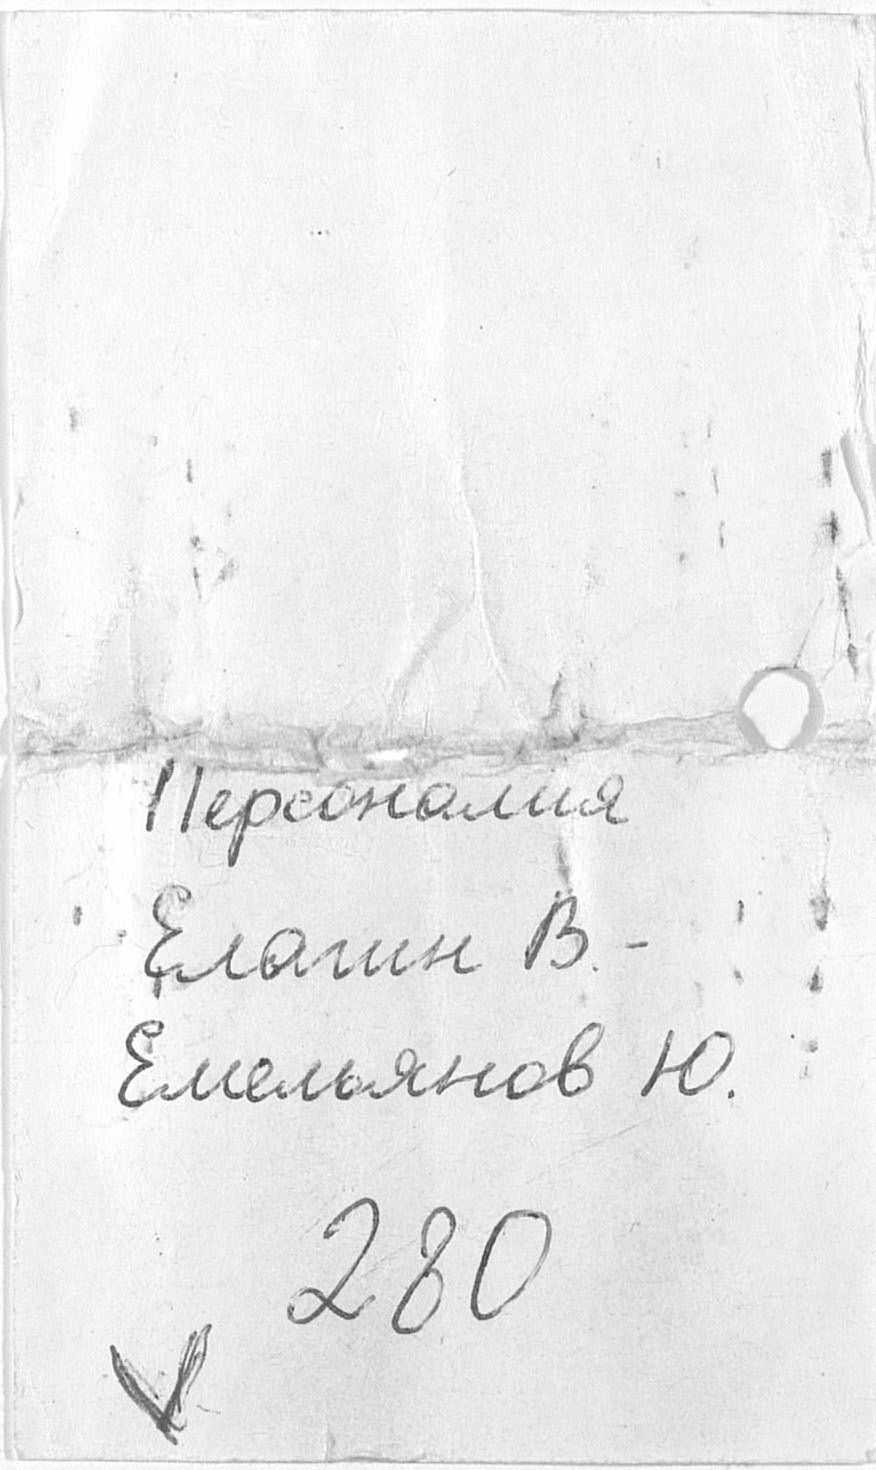 Персоналия
Елагин В.-
Емельянов Ю.
280